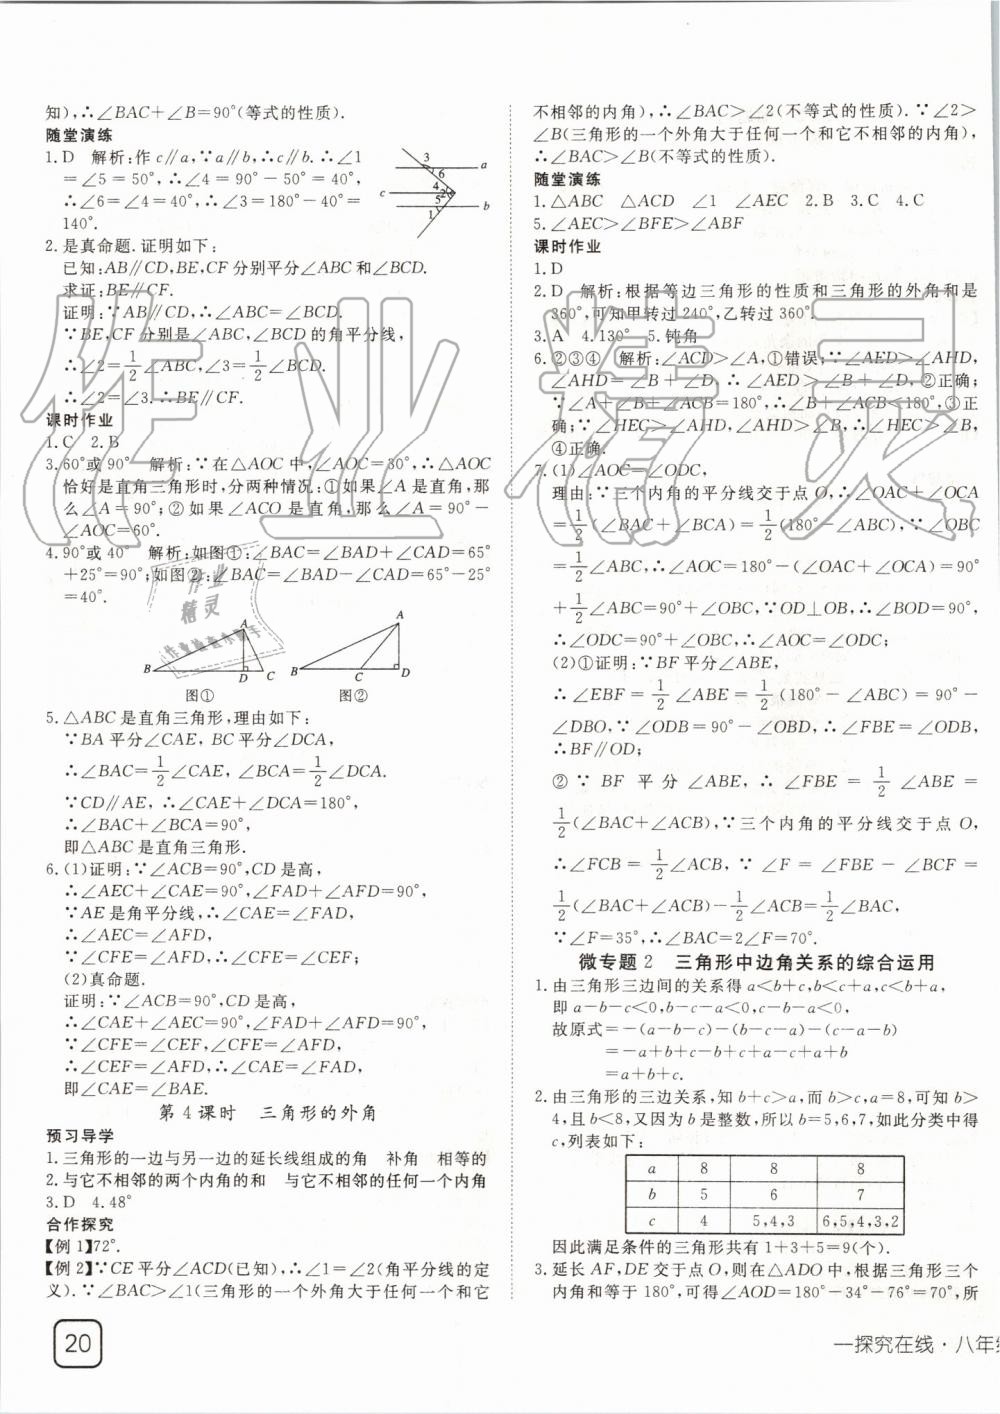 知),∴∠BAC+∠B=90°(等式的性质).
随堂演练
1. D 解析:作c∥a,∵a∥b,∴c∥b.∴∠1
=∠5=50°,∴∠4=90°-50°=40°,
∴∠6=∠4=40°,∴∠3=180°-40°=
140°.
3
6
a
4
c
2
5
b
1
2. 是真命题.证明如下:
已知:AB∥CD,BE,CF分别平分∠ABC和∠BCD.
求证:BE∥CF.
证明:∵AB∥CD,∴∠ABC=∠BCD.
∵BE,CF分别是∠ABC,∠BCD的角平分线,
∴∠2=1/2∠ABC,∠3=1/2∠BCD.
∴∠2=∠3.∴BE∥CF.
课时作业
1. C 2. B
3. 60°或90° 解析:∵在△AOC中,∠AOC=30°,∴△AOC
恰好是直角三角形时,分两种情况:①如果∠A是直角,那
么∠A=90°;②如果∠ACO是直角,那么∠A=90°-
∠AOC=60°.
4. 90°或40° 解析:如图①:∠BAC=∠BAD+∠CAD=65°
+25°=90°;如图②:∠BAC=∠BAD-∠CAD=65°-25°
=40°.
A
B
D
C
图①
A
B
C
D
图②
5. △ABC是直角三角形,理由如下:
∵BA平分∠CAE, BC平分∠DCA,
∴∠BAC=1/2∠CAE, ∠BCA=1/2∠DCA.
∵CD∥AE, ∴∠CAE+∠DCA=180°,
∴∠BAC+∠BCA=90°,
即△ABC是直角三角形.
6. (1)证明:∵∠ACB=90°,CD是高,
∴∠AEC+∠CAE=90°,∠FAD+∠AFD=90°.
∵AE是角平分线,∴∠CAE=∠FAD,
∴∠AEC=∠AFD,
∵∠CFE=∠AFD,∴∠CFE=∠CEF;
(2)真命题.
证明:∵∠ACB=90°,CD是高,
∴∠CAE+∠AEC=90°,∠FAD+∠AFD=90°.
∵∠CFE=∠CEF,∠CFE=∠AFD,
∴∠CEF=∠AFD,∴∠CAE=∠FAD,
即∠CAE=∠BAE.
第4课时 三角形的外角
预习导学
1. 三角形的一边与另一边的延长线组成的角 补角 相等的
2. 与它不相邻的两个内角的和 与它不相邻的任何一个内角
3. D 4. 48°
合作探究
【例1】72°.
【例2】∵CE平分∠ACD(已知),∴∠1=∠2(角平分线的定
义).∵∠BAC>∠1(三角形的一个外角大于任何一个和它
20
不相邻的内角),∴∠BAC>∠2(不等式的性质).∵∠2>
∠B(三角形的一个外角大于任何一个和它不相邻的内角),
∴∠BAC>∠B(不等式的性质).
随堂演练
1. △ABC △ACD ∠1 ∠AEC 2. B 3. C 4. C
5. ∠AEC>∠BFE>∠ABF
课时作业
1. D
2. D 解析:根据等边三角形的性质和三角形的外角和是
360°,可知甲转过240°,乙转过360°.
3. A 4. 130° 5. 钝角
6. ②③④ 解析:∠ACD>∠A,①错误;∵∠AED>∠AHD,
∠AHD=∠B+∠D,∴∠AED>∠B+∠D,②正确;
∵∠A+∠B+∠ACB=180°,∴∠B+∠ACB<180°,③正
确;∵∠HEC>∠AHD,∠AHD>∠B,∴∠HEC>∠B,
④正确.
7. (1)∠AOC=∠ODC,
理由:∵三个内角的平分线交于点O,∴∠OAC+∠OCA
=1/2(∠BAC+∠BCA)=1/2(180°-∠ABC),∵∠OBC
=1/2∠ABC,∴∠AOC=180°-(∠OAC+∠OCA)=90°
+1/2∠ABC=90°+∠OBC,∵OD⊥OB,∴∠BOD=90°,
∴∠ODC=90°+∠OBC,∴∠AOC=∠ODC;
(2)①证明:∵BF平分∠ABE,
∴∠EBF=1/2∠ABE=1/2(180°-∠ABC)=90°-
∠DBO,∵∠ODB=90°-∠OBD,∴∠FBE=∠ODB,
∴BF∥OD;
② ∵ BF 平 分 ∠ABE, ∴ ∠FBE = 1/2 ∠ABE =
1/2(∠BAC+∠ACB),∵三个内角的平分线交于点O,
∴∠FCB=1/2∠ACB, ∵ ∠F=∠FBE-∠BCF=
1/2(∠BAC+∠ACB)-1/2∠ACB=1/2∠BAC,
∵∠F=35°,∴∠BAC=2∠F=70°.
微专题2 三角形中边角关系的综合运用
1. 由三角形三边间的关系得a<b+c,b<c+a,c<b+a,
即a-b-c<0,b-c-a<0,c-b-a<0,
故原式=-(a-b-c)-(b-c-a)-(c-a-b)
=-a+b+c-b+c+a-c+a+b
=a+b+c.
2. 由三角形的三边关系,知b+c>a,而b>c,a=8,可知b>
4,且b<8,又因为b是整数,所以b=5,6,7,如此分类中得
c,列表如下:
a 8 8 8
b 5 6 7
c 4 5,4,3 6,5,4,3,2
因此满足条件的三角形共有1+3+5=9(个).
3. 延长AF,DE交于点O,则在△ADO中,根据三角形三个
内角和等于180°,可得∠AOD=180°-34°-76°=70°,所
一探究在线·八年
作业精灵
作业
精灵
作业检查小助手